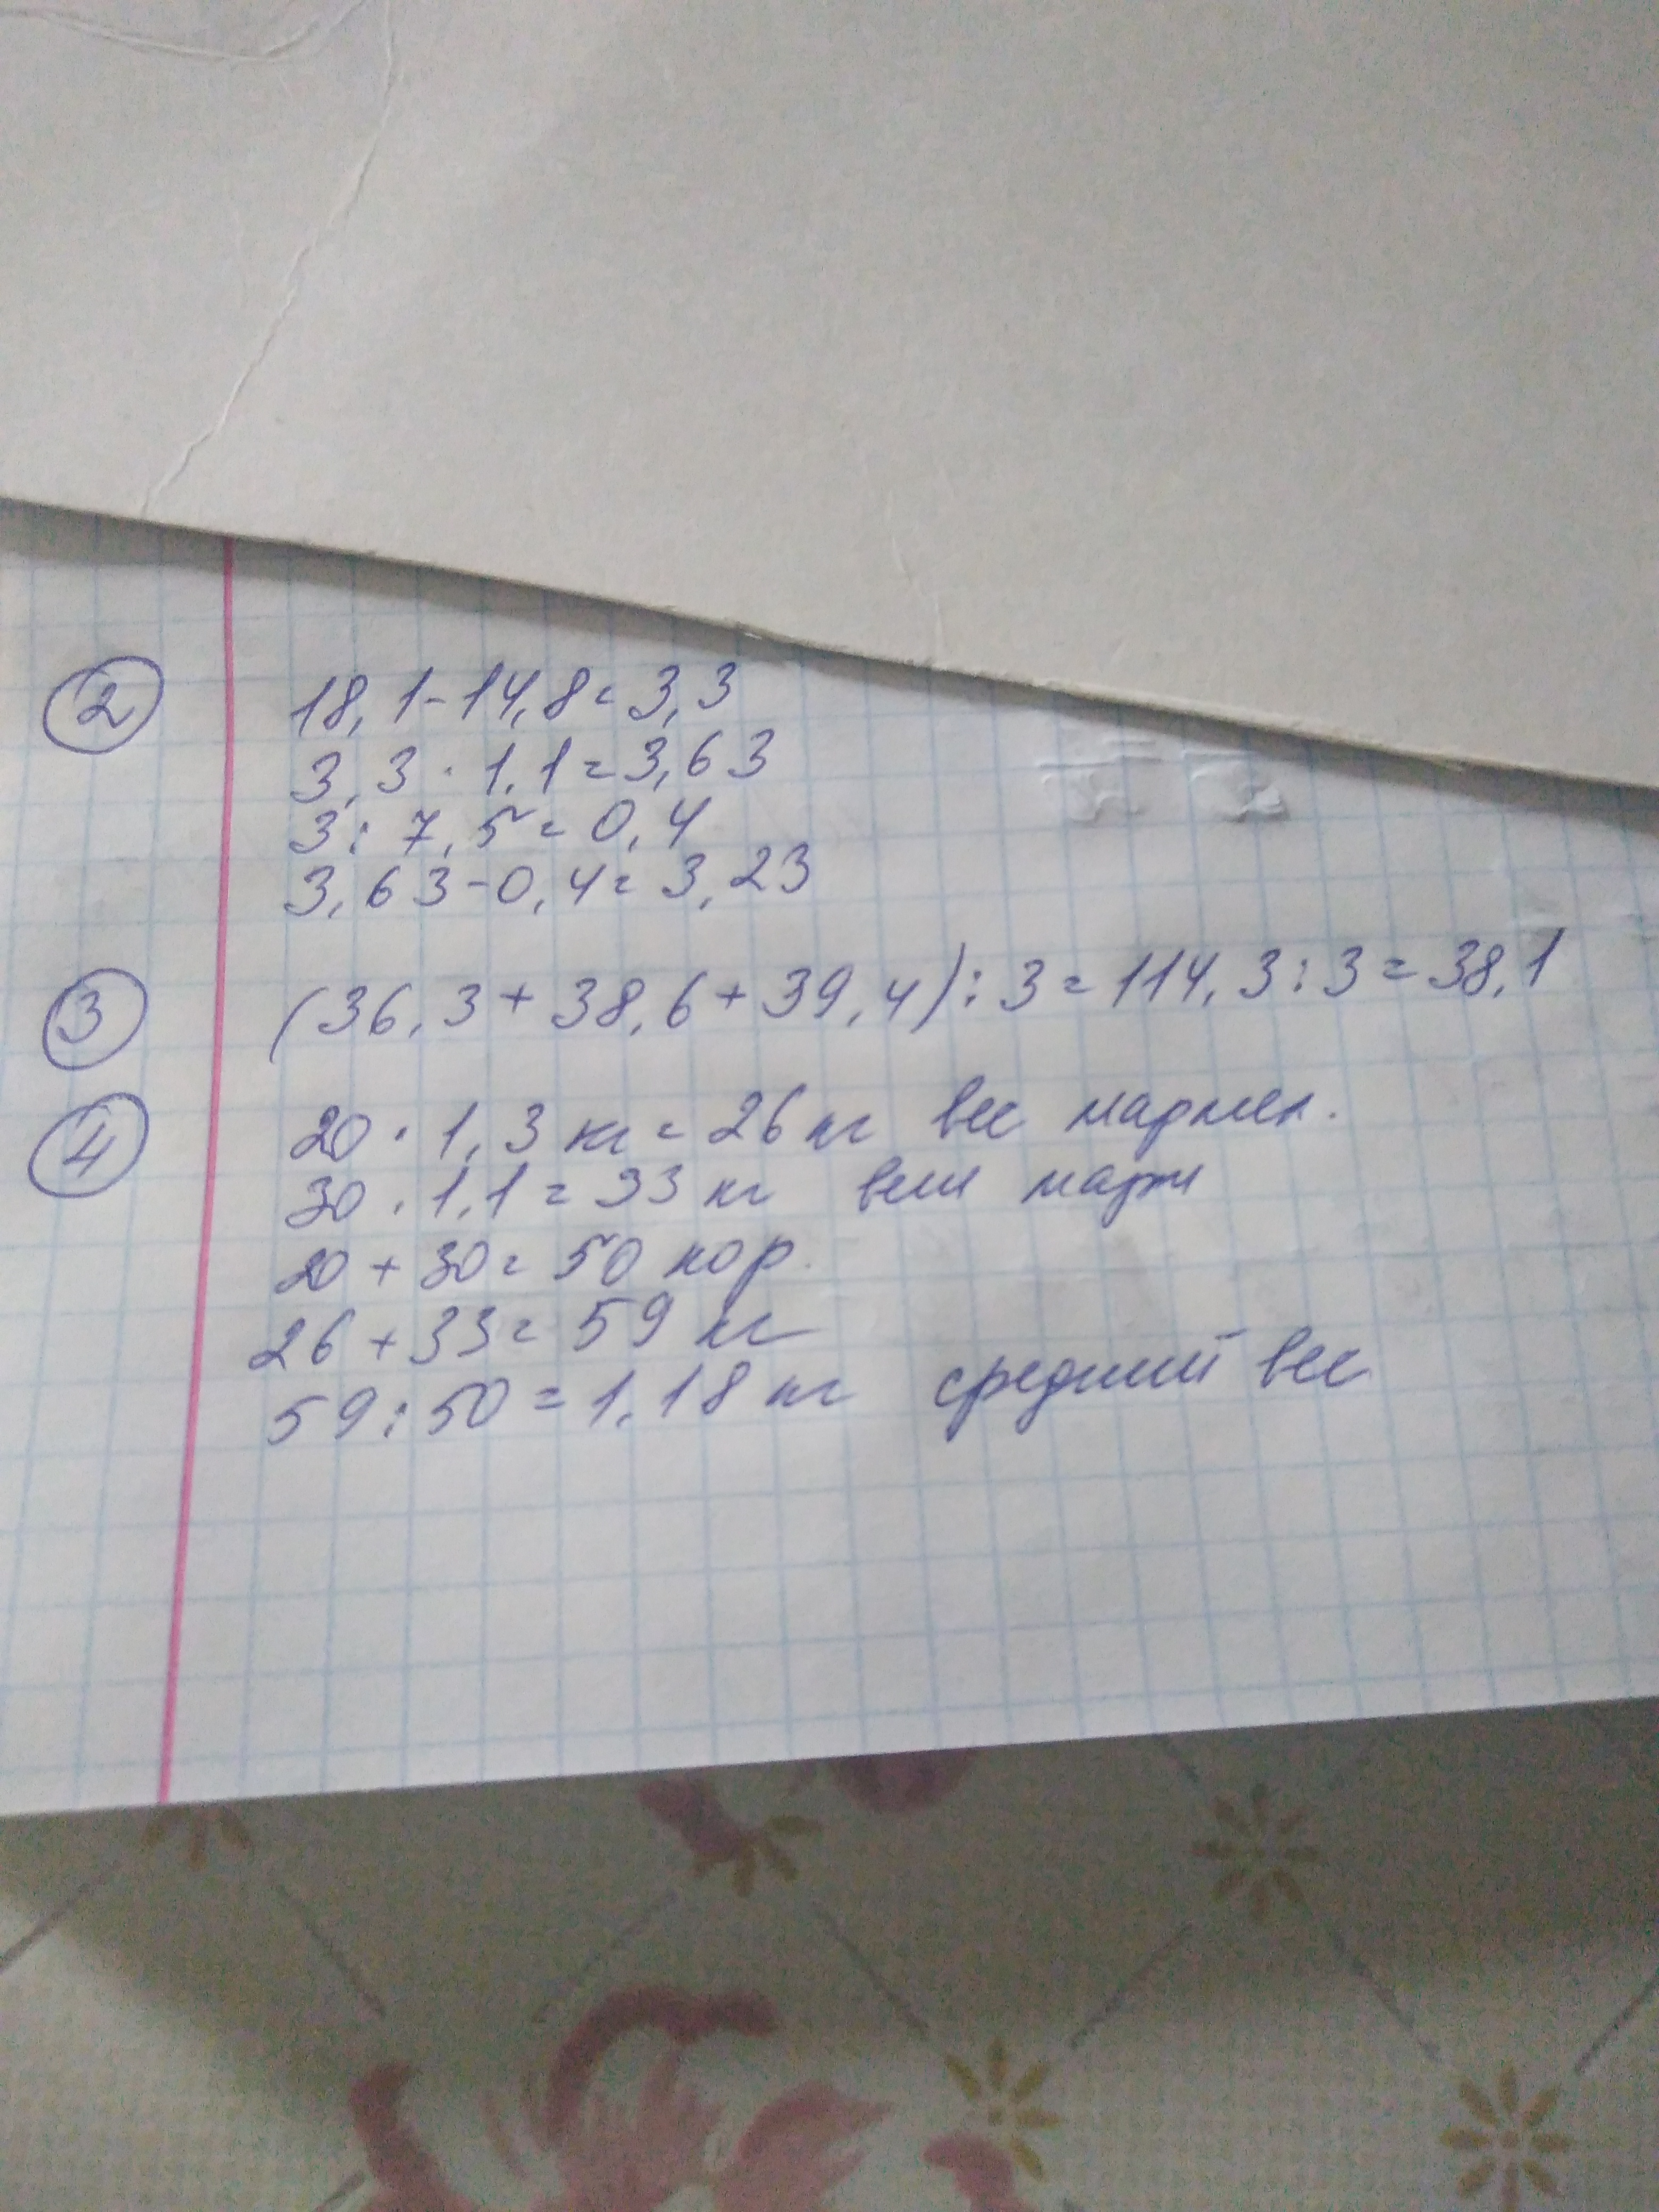 2 18,1-14,8=3,3
3,3·1,1=3,63
3:7,5=0,4
3,63-0,4=3,23
3 (36,3+38,6+39,4):3=114,3:3=38,1
4 20·1,3кг=26кг вес
30·1,1=33 кг
20+30=50 кор.
26+33=59 кг
59:50=1,18 кг средний вес